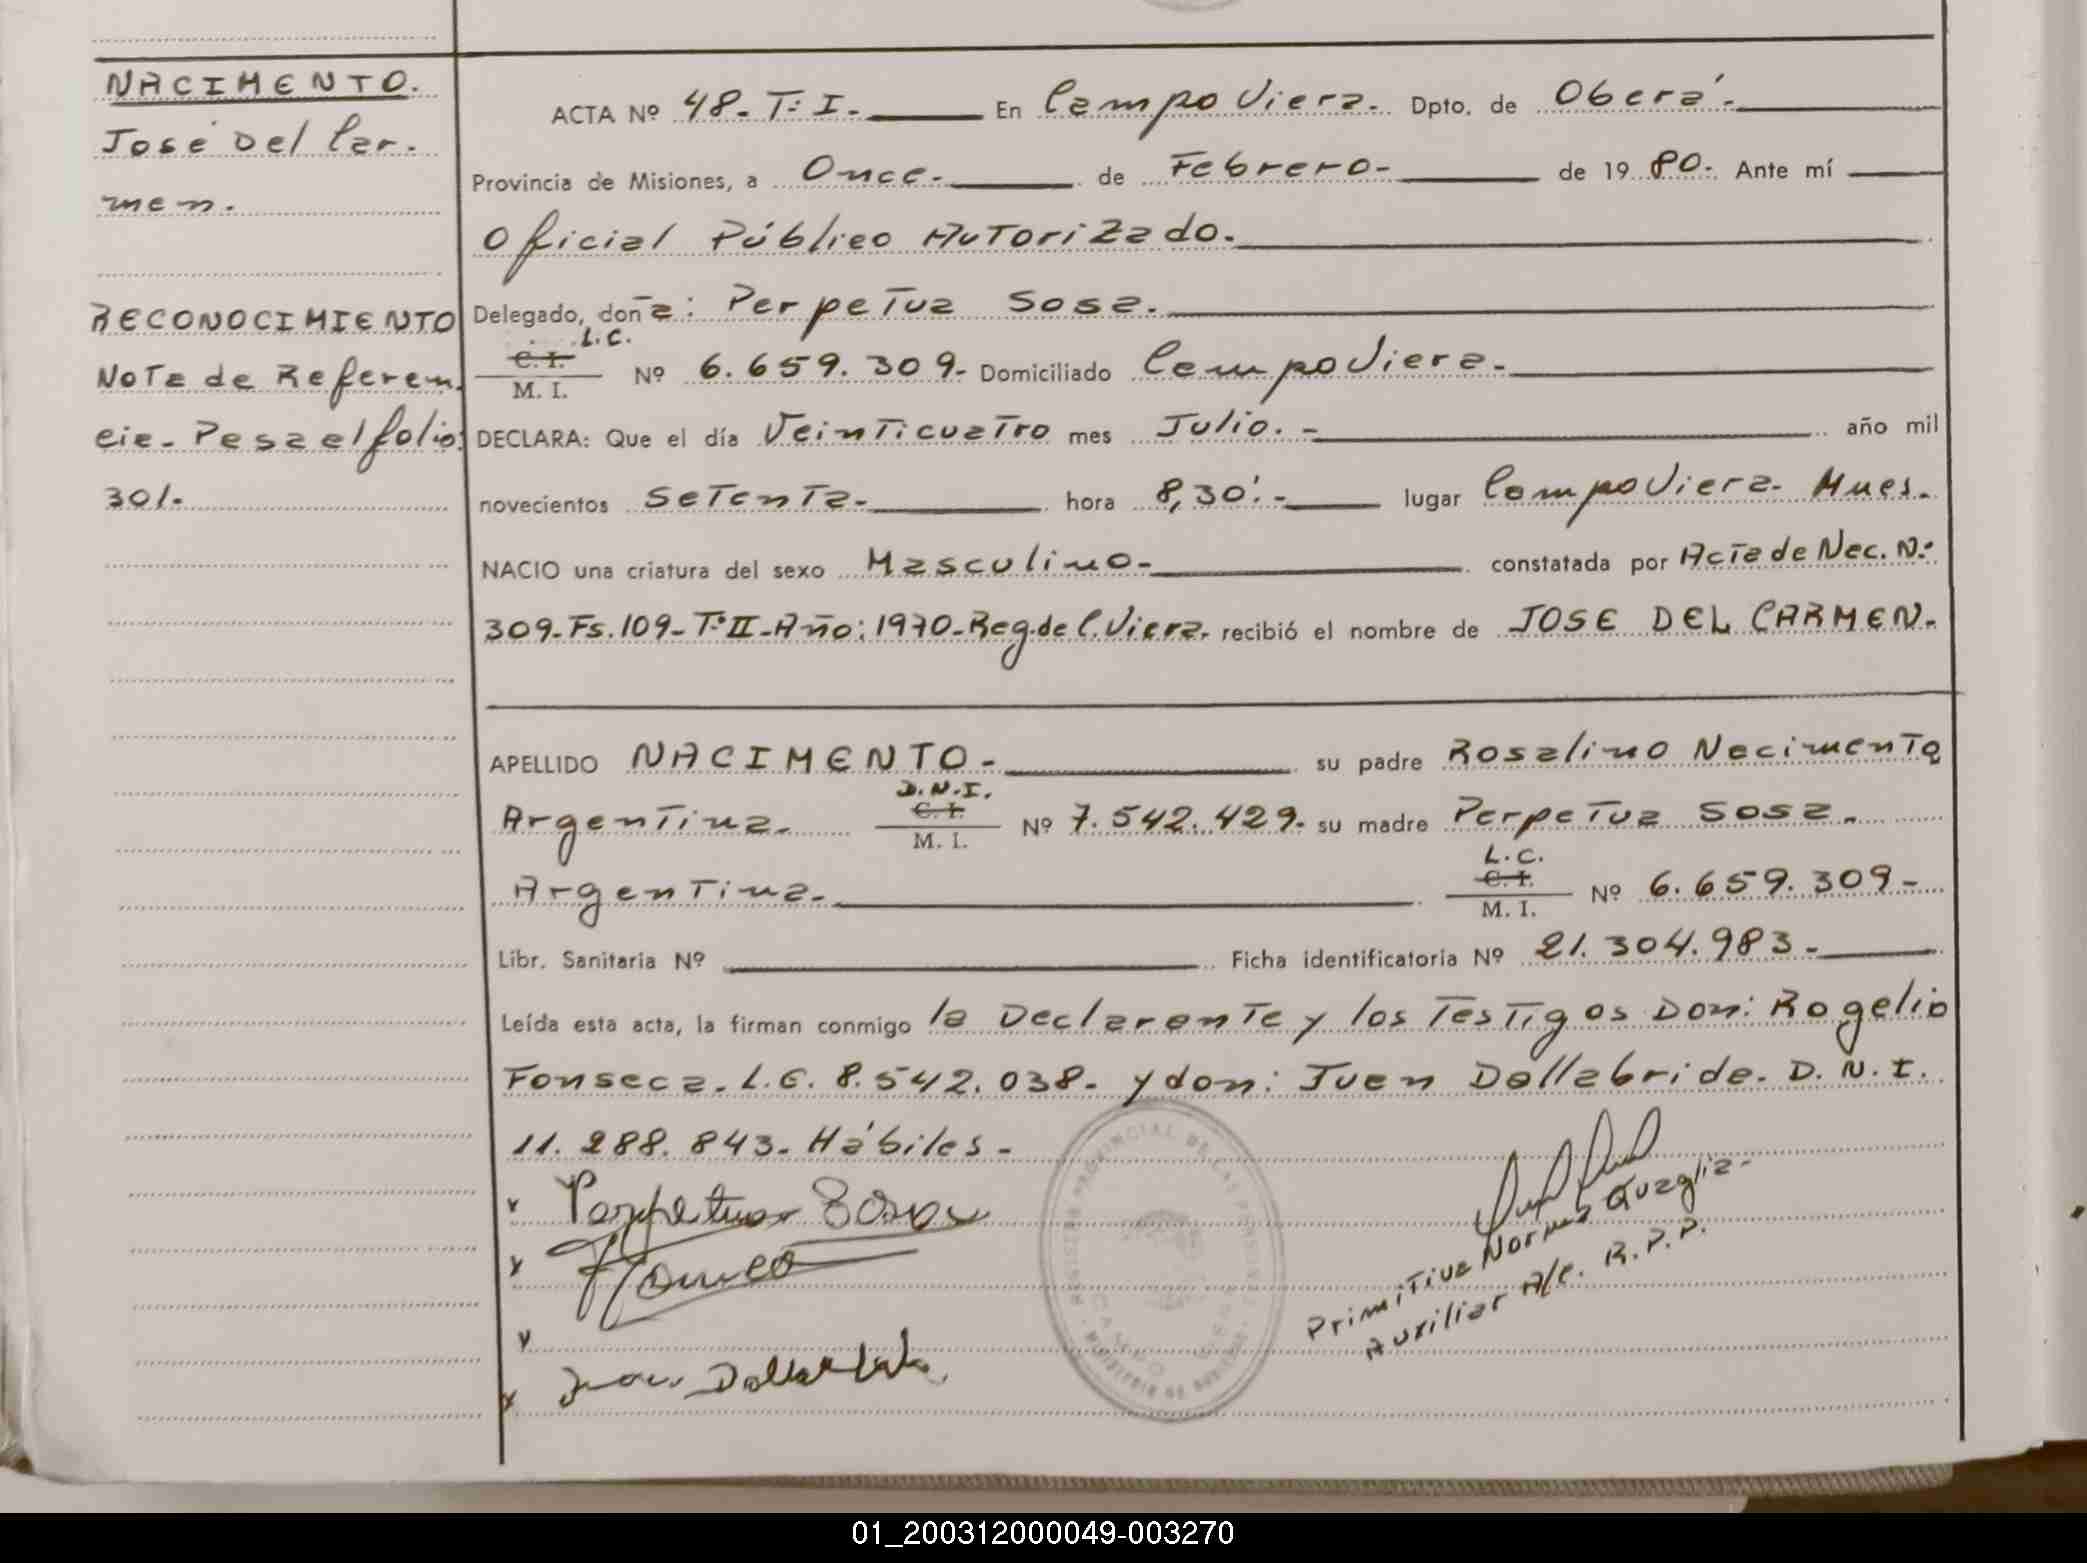 NACIMENTO.
José Del Car.
men.
RECONOCIMIENTO
Nota de Referen.
cia. Pasa el folio:
301.
ACTA Nº 48. T: I. En Campo Viera. Dpto. de Oberá.
Provincia de Misiones, a Once. de Febrero. de 1980. Ante mí
Oficial Público Autorizado.
Delegado, doña: Perpetua Sosa.
L.C.
C. I.
M. I. Nº 6.659.309. Domiciliado Campo Viera.
DECLARA: Que el día Veinticuatro mes Julio. año mil
novecientos Setenta. hora 8,30'. lugar Campo Viera. Mnes.
NACIO una criatura del sexo Masculino. constatada por Acta de Nac. N:
309. Fs. 109. Tº II. Año: 1970. Reg. de C. Viera. recibió el nombre de JOSE DEL CARMEN.
APELLIDO NACIMENTO. su padre Rosalino Nacimento
D.N.I.
C. I.
Argentina. M. I. Nº 7.542.429. su madre Perpetua Sosa.
L.C.
C. I.
Argentina. M. I. Nº 6.659.309.
Libr. Sanitaria Nº Ficha identificatoria Nº 21.304.983.
Leída esta acta, la firman conmigo la Declarante y los Testigos Don: Rogelio
Fonseca. L.E. 8.542.038. y don: Juan Dallabrida. D.N.I.
11.288.843. Hábiles.
Perpetua Sosa
Primitiva Norma Quaglia.
Auxiliar A/c. R.P.P.
REGISTRO PROVINCIAL DE LAS PERSONAS
CAMPO VIERA
MINISTERIO DE GOBIERNO
01_200312000049-003270